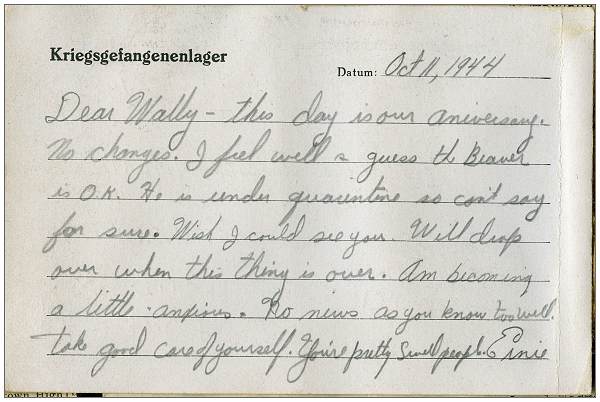 Kriegsgefangenenlager
Datum: Oct 11, 1944
Dear Wally – this day is our aniversary.
No changes. I feel well & guess th Beaver
is O.K. He is under quarentine so can't say
for sure. Wish I could see you. Will drop
over when this thing is over. Am becoming
a little anxious. No news as you know too well.
Take good care of yourself. You're pretty swell people. Einie